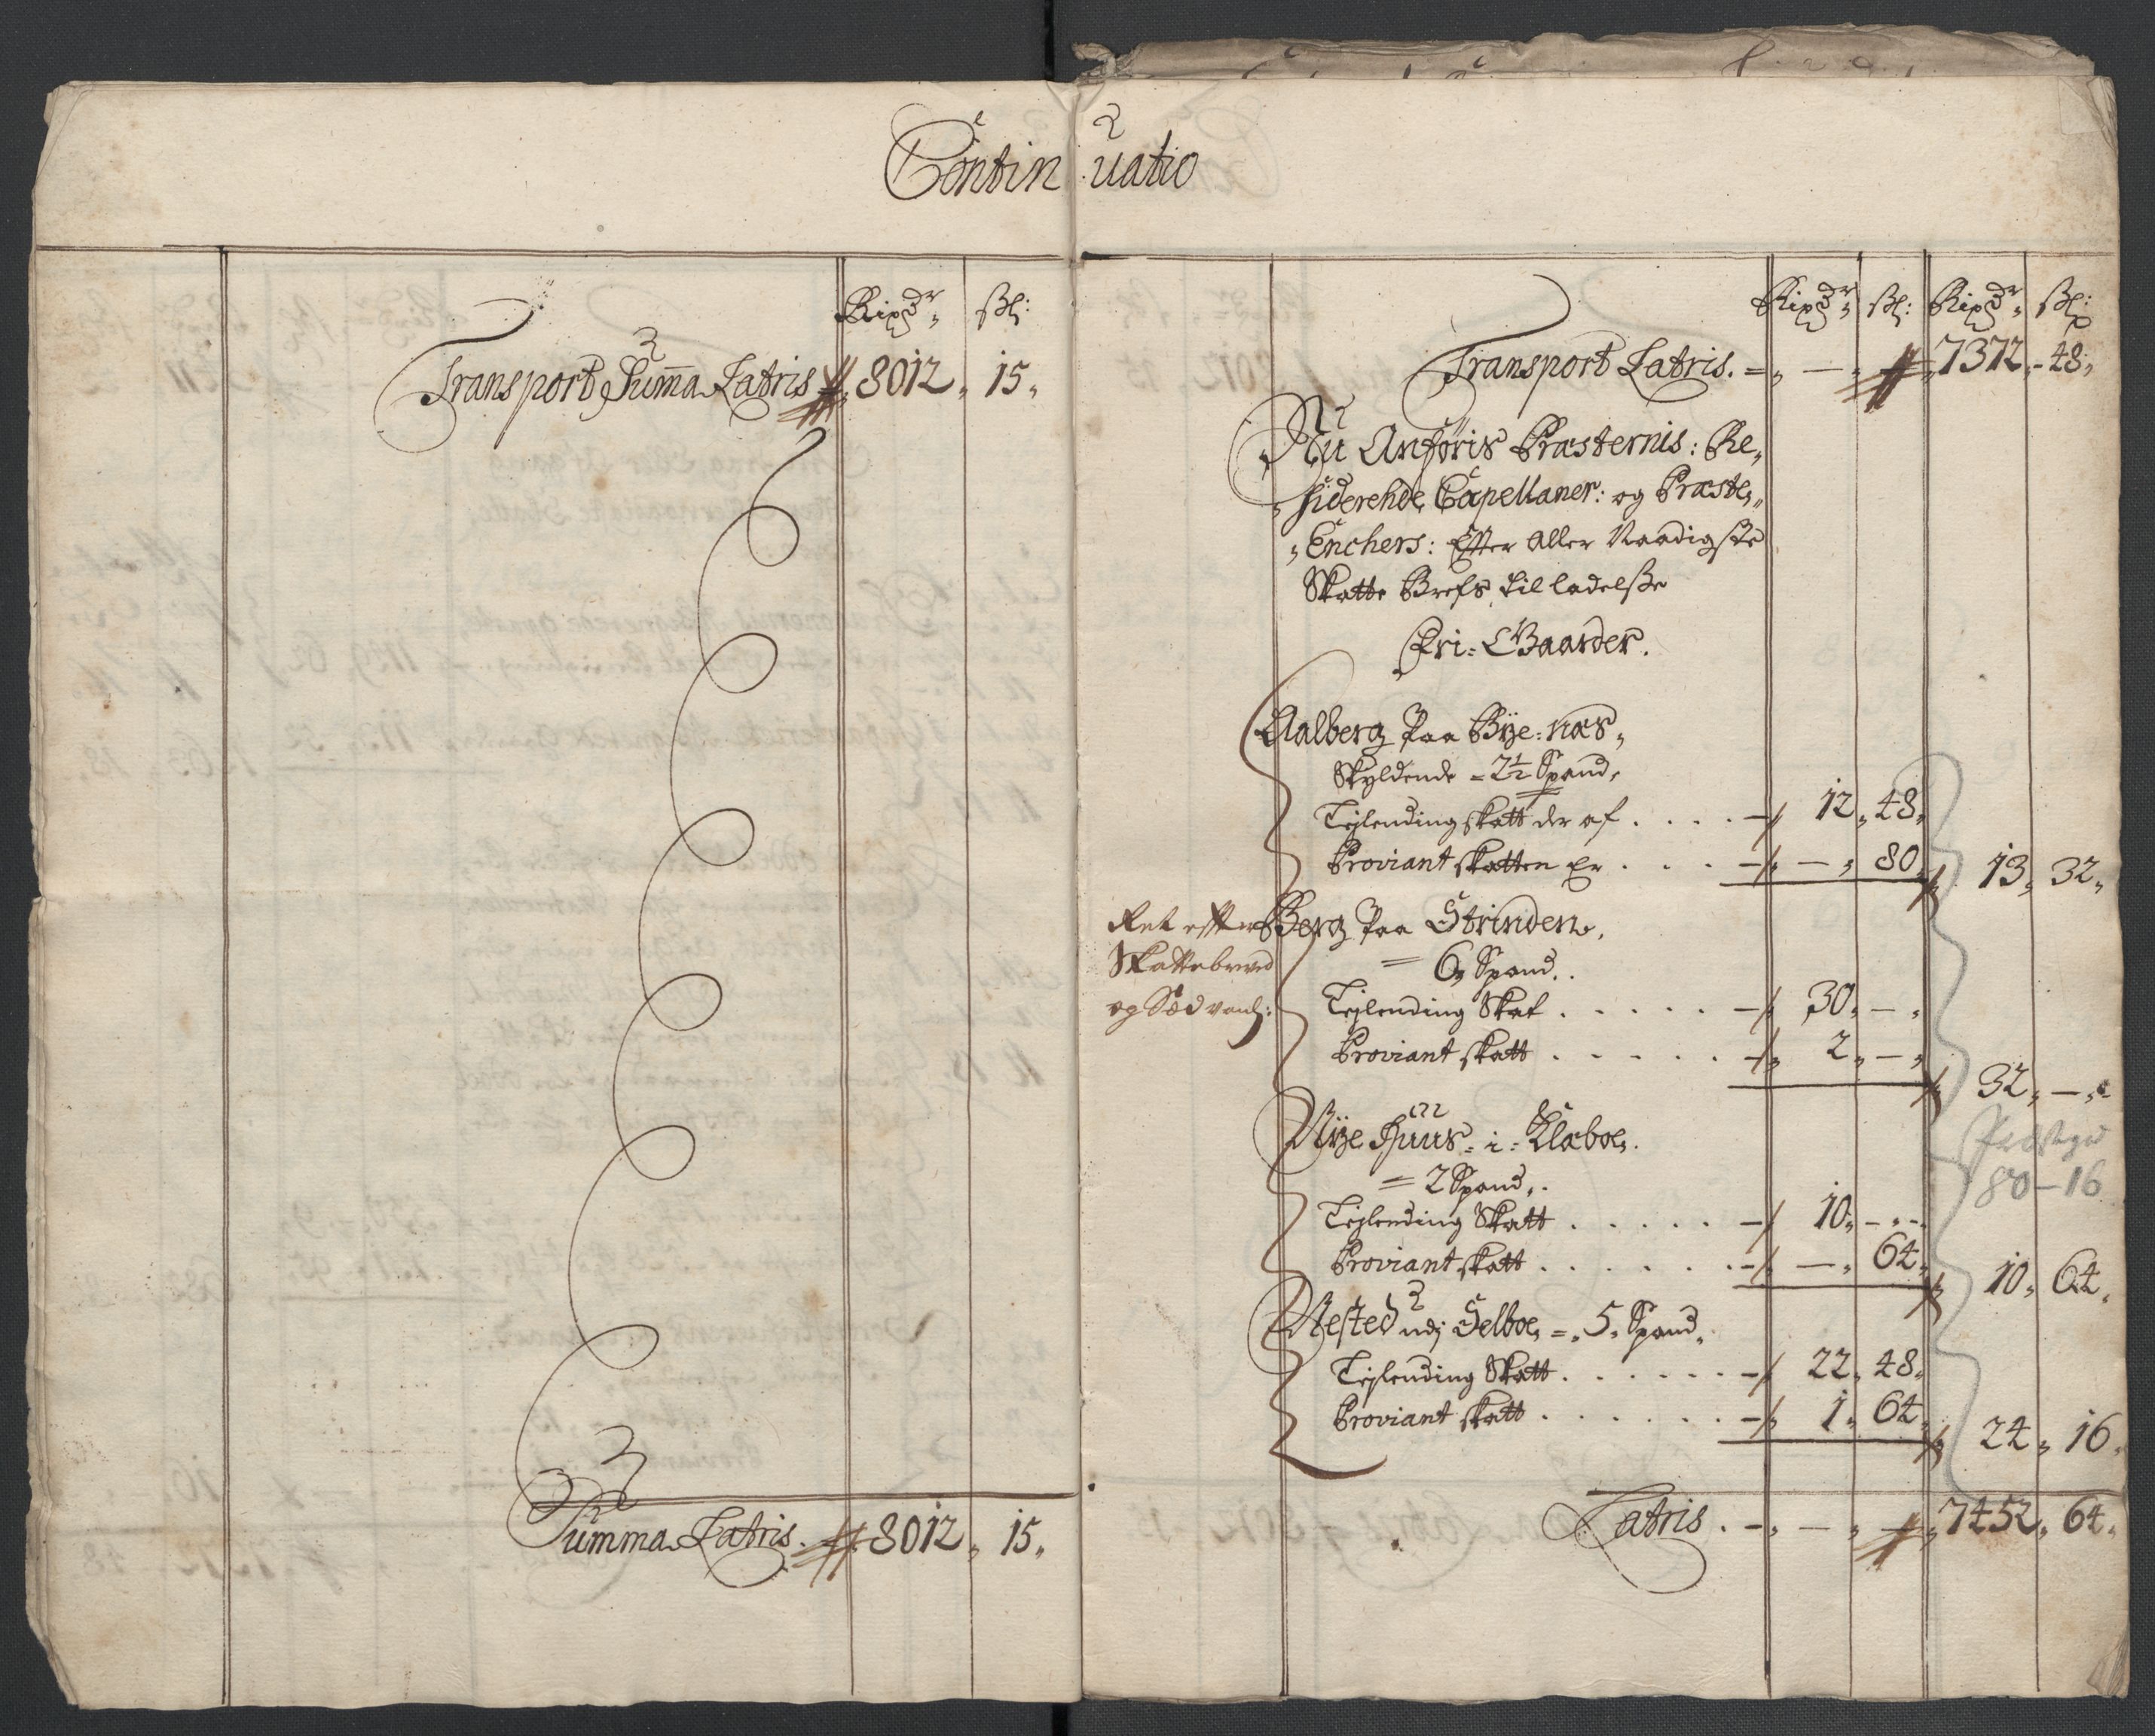 Continuatio
Ripdr ßl:
Transport Suma Latris 8012 15
Summa Latris 8012 15
Ripdr ßl: Ripdr ßl:
Transport Latris. 7372 48
Nu Anföris Præsternis: Re,
siderende Capellaner: og Præste,,
Enchers: Efter Aller Naadigste
Skatte Brefs till ladelße
Fri=Gaarder.
Aalberg Paa Bÿe=næs
Skyldende = 2½ Spand,
Tejlending skatt der af . . . 12 48
Proviant skatten Er . . . — 80 13 32
Ret efter
Skattebrevet
og Sædvanl:
Berg Paa Strinden,
= 6 Spand.
Tejlending Skat . . . . . 30 —
Proviant skatt . . . . . 2 — 32 —
Nÿe Huus=i=Klæboe.
= 2 Spand,
80—16
Tejlending Skatt . . . . . 10 —
Proviant skatt . . . . . — 64 10 64
Nested udj Selboe = 5 Spand
Tejlending Skatt . . . . . 22 48
Proviant skatt . . . . . 1 64 24 16
Latris . 7452 64